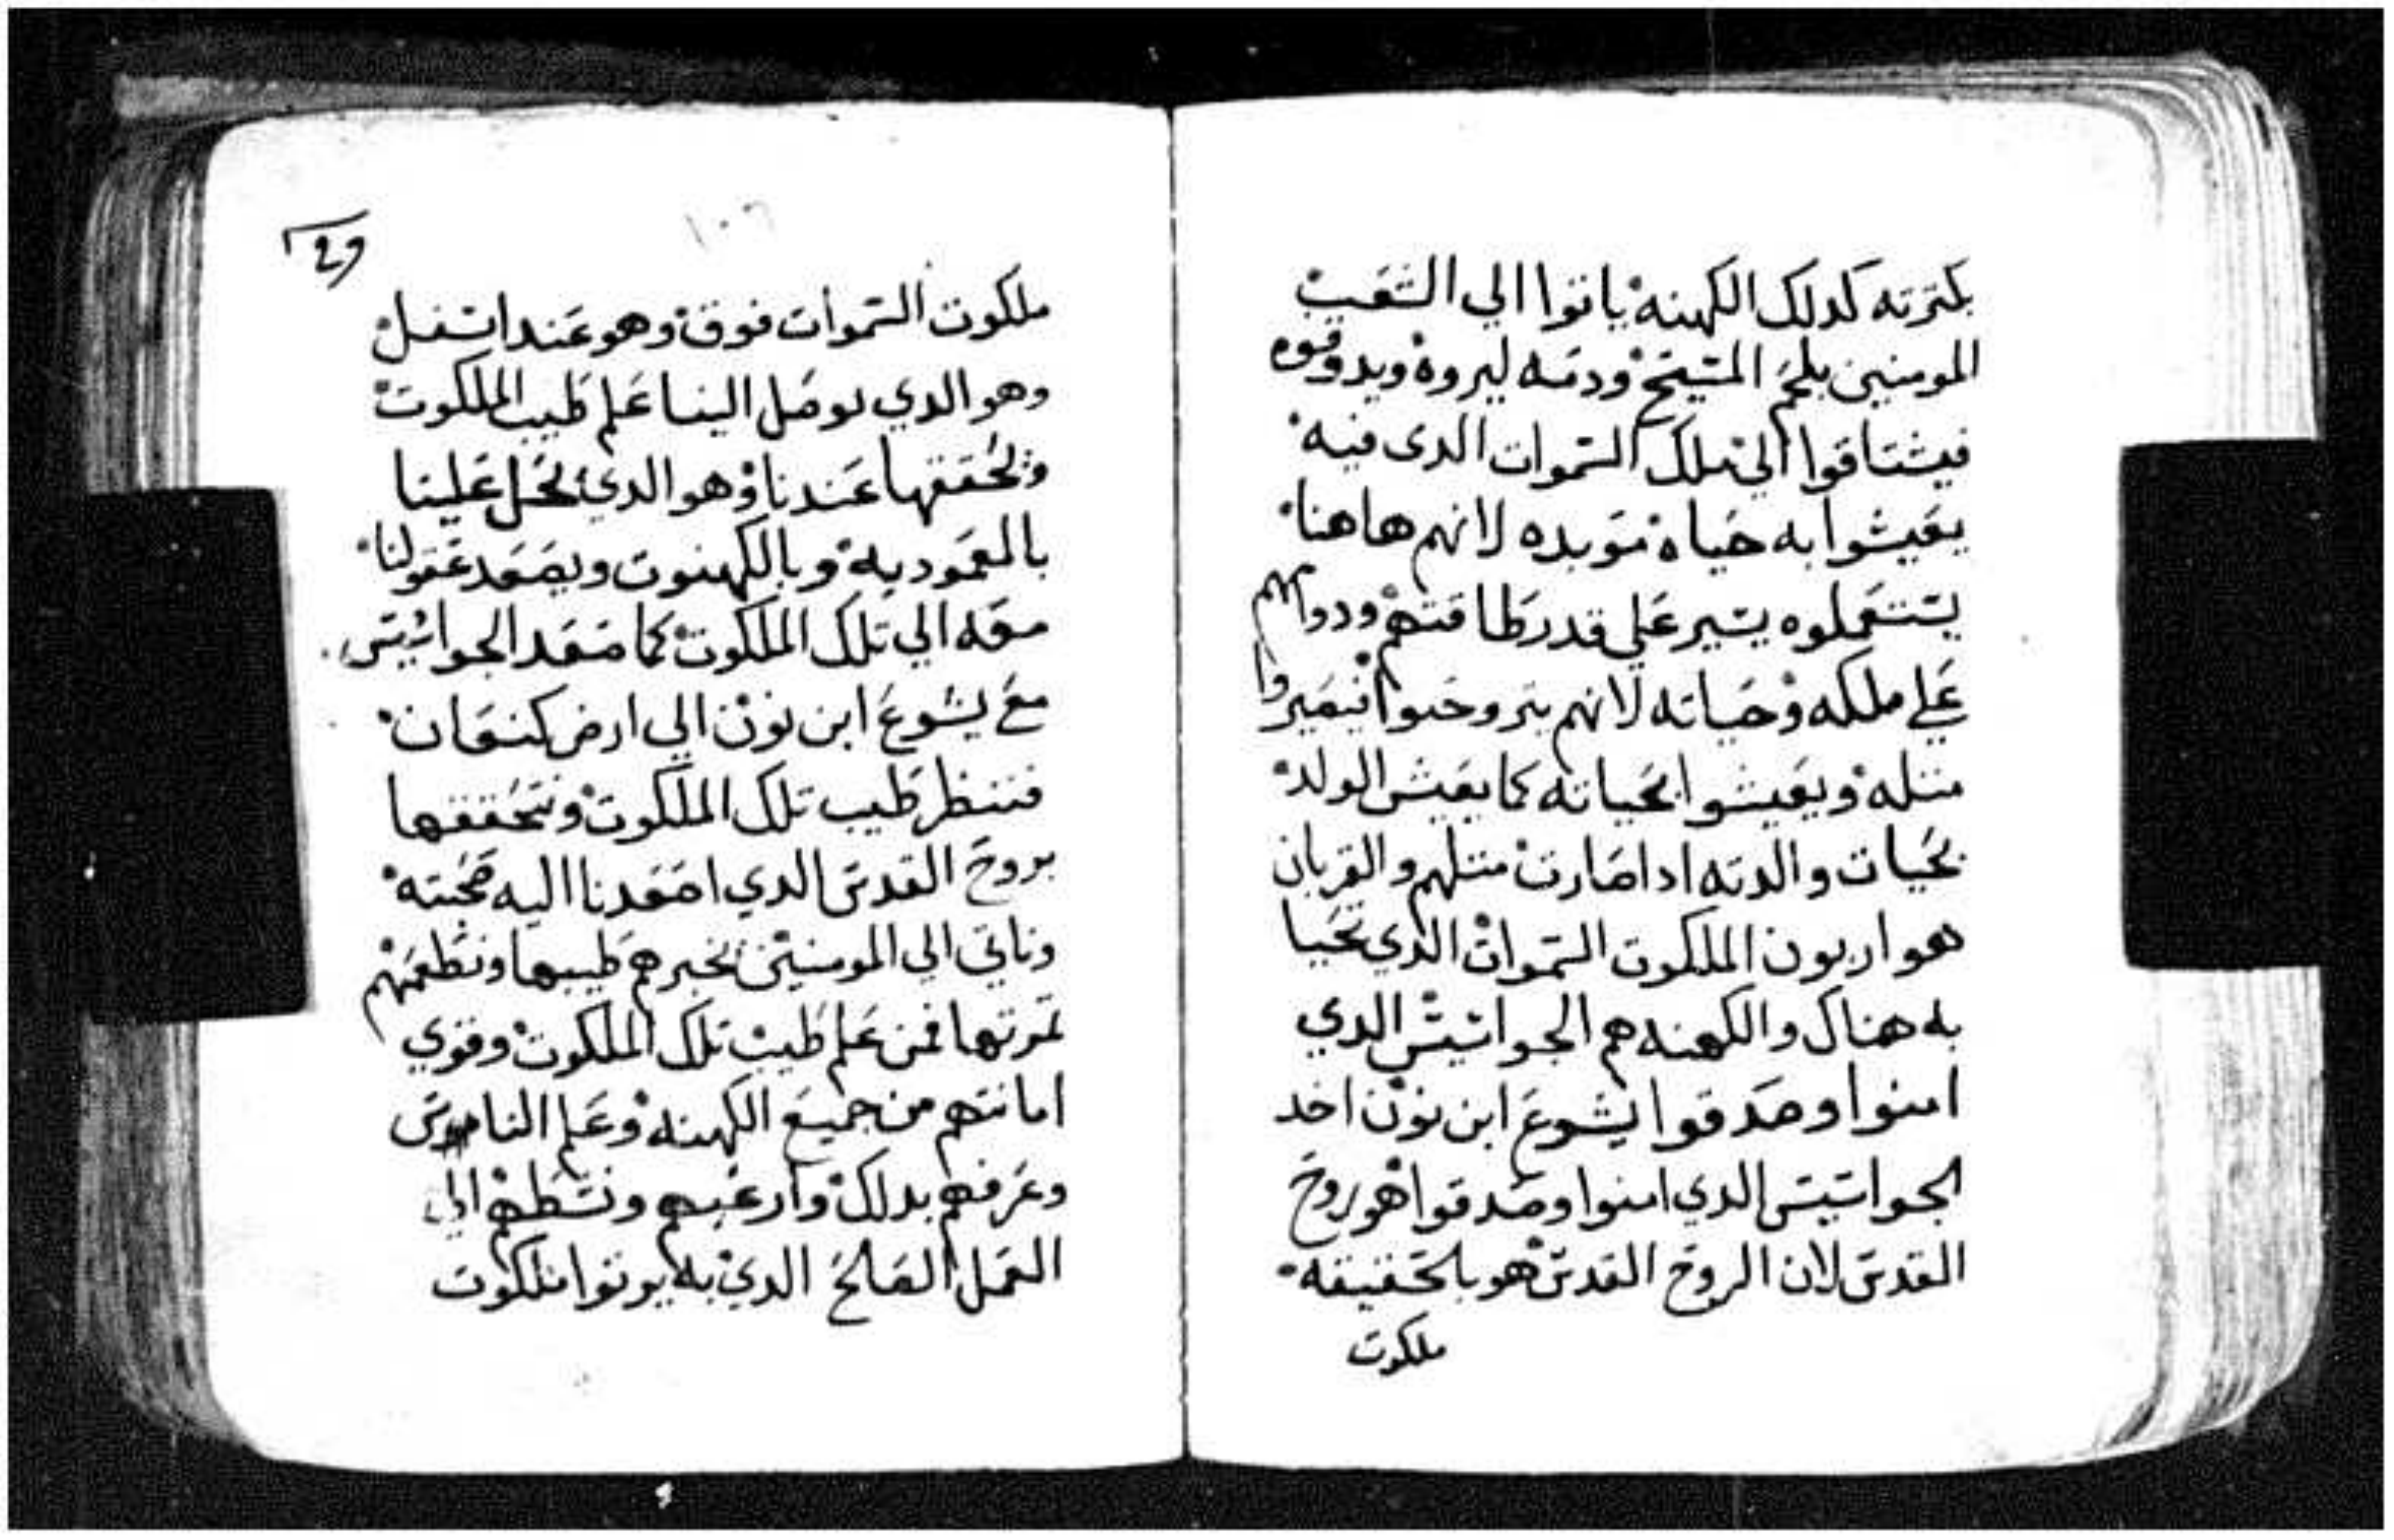 بثمرته كدلك الكهنه ياتوا الي الشعب
المومنين بلحم المسيح ودمه ليروه ويدوقوه
فيشتاقوا الي ملك السموات الدى فيه
يعيشوا به حياه موبده لانهم هاهنا
يستعملوه يسير علي قدر طاقتهم ودوامهم
علي ملكه وحياته لانهم يتروحنوا فيصيروا
متله ويعيشوا بحياته كما يعيش الولد
بحيات والدته ادا صارت متلهم والقربان
هو اربون الملكوت السموات الدي نحيا
به هناك والكهنه هم الجواسيس الدي
امنوا وصدقوا يشوع ابن نون اخد
الجواسيس الدي امنوا وصدقوا هو روح
القدس لان الروح القدس هو بالحقيقه
ملكوت
١٠٦
ملكوت السموات فوق وهو عندا سفل
وهو الدي يوصل الينا علم طيب الملكوت
ونحققها عندنا وهو الدي يحل علينا
بالمعموديه وبالكهنوت ويصعد عقولنا
معه الي تلك الملكوت كما صعد الجواسيس
مع يشوع ابن نون الي ارض كنعان
فننظر طيب تلك الملكوت ونتحققها
بروح القدس الدي اصعدنا اليه صحبته
وناتي الي المومنين نخبرهم طيبها ونطعمهم
تمرتها فمن علم طيب تلك الملكوت وقوي
امانتهم من جميع الكهنه وعلم الناموس
وعرفهم بدلك وارغبهم ونشطهم الي
العمل الصالح الدي به يرتوا ملكوت